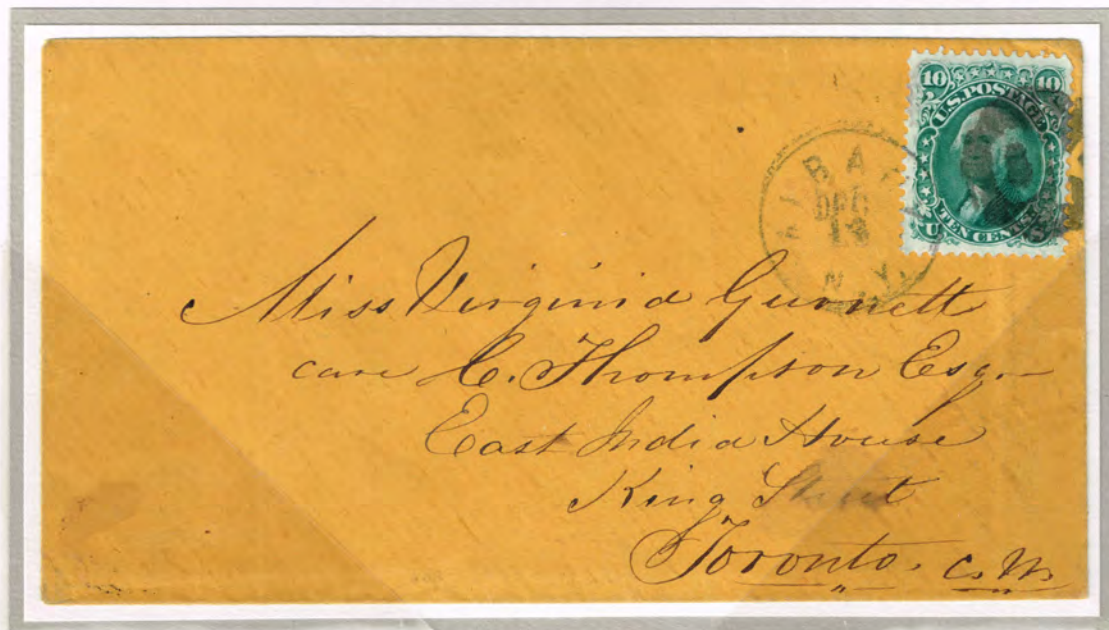 10 10
U.S. POSTAGE
U TEN CENTS
ALBANY
DEC
N.Y.
Miss Virginia Gurnett
care C. Thompson Esq.
East India House
King Street
Toronto. C.W.